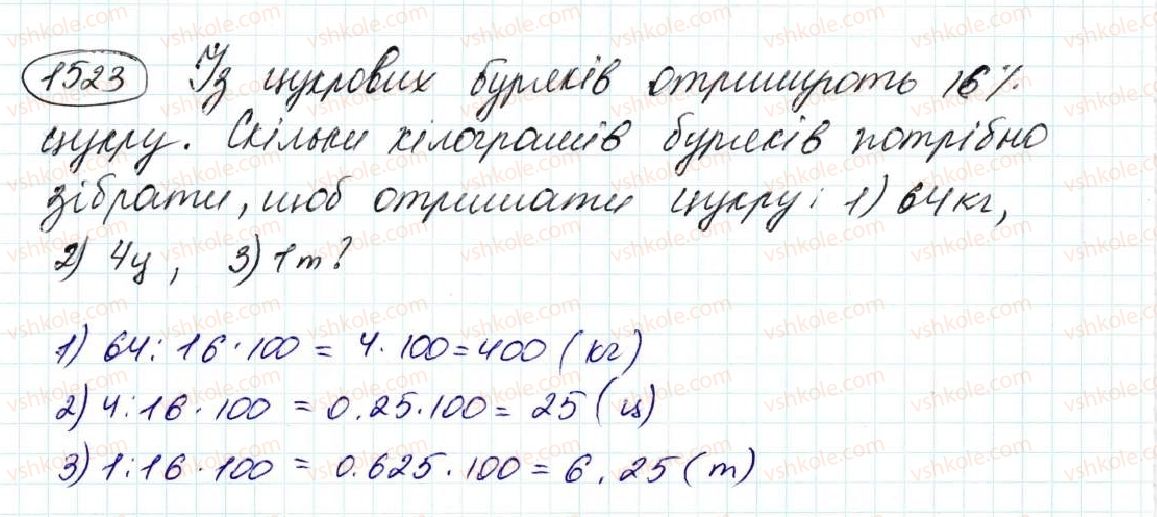 1523 Із цукрових буряків отримують 16%
цукру. Скільки кілограмів буряків потрібно
зібрати, щоб отримати цукру: 1) 64 кг,
2) 4ц, 3) 1т?
1) 64 : 16 · 100 = 4 · 100 = 400 (кг)
2) 4 : 16 · 100 = 0.25 · 100 = 25 (ц)
3) 1 : 16 · 100 = 0.625 · 100 = 6,25 (т)